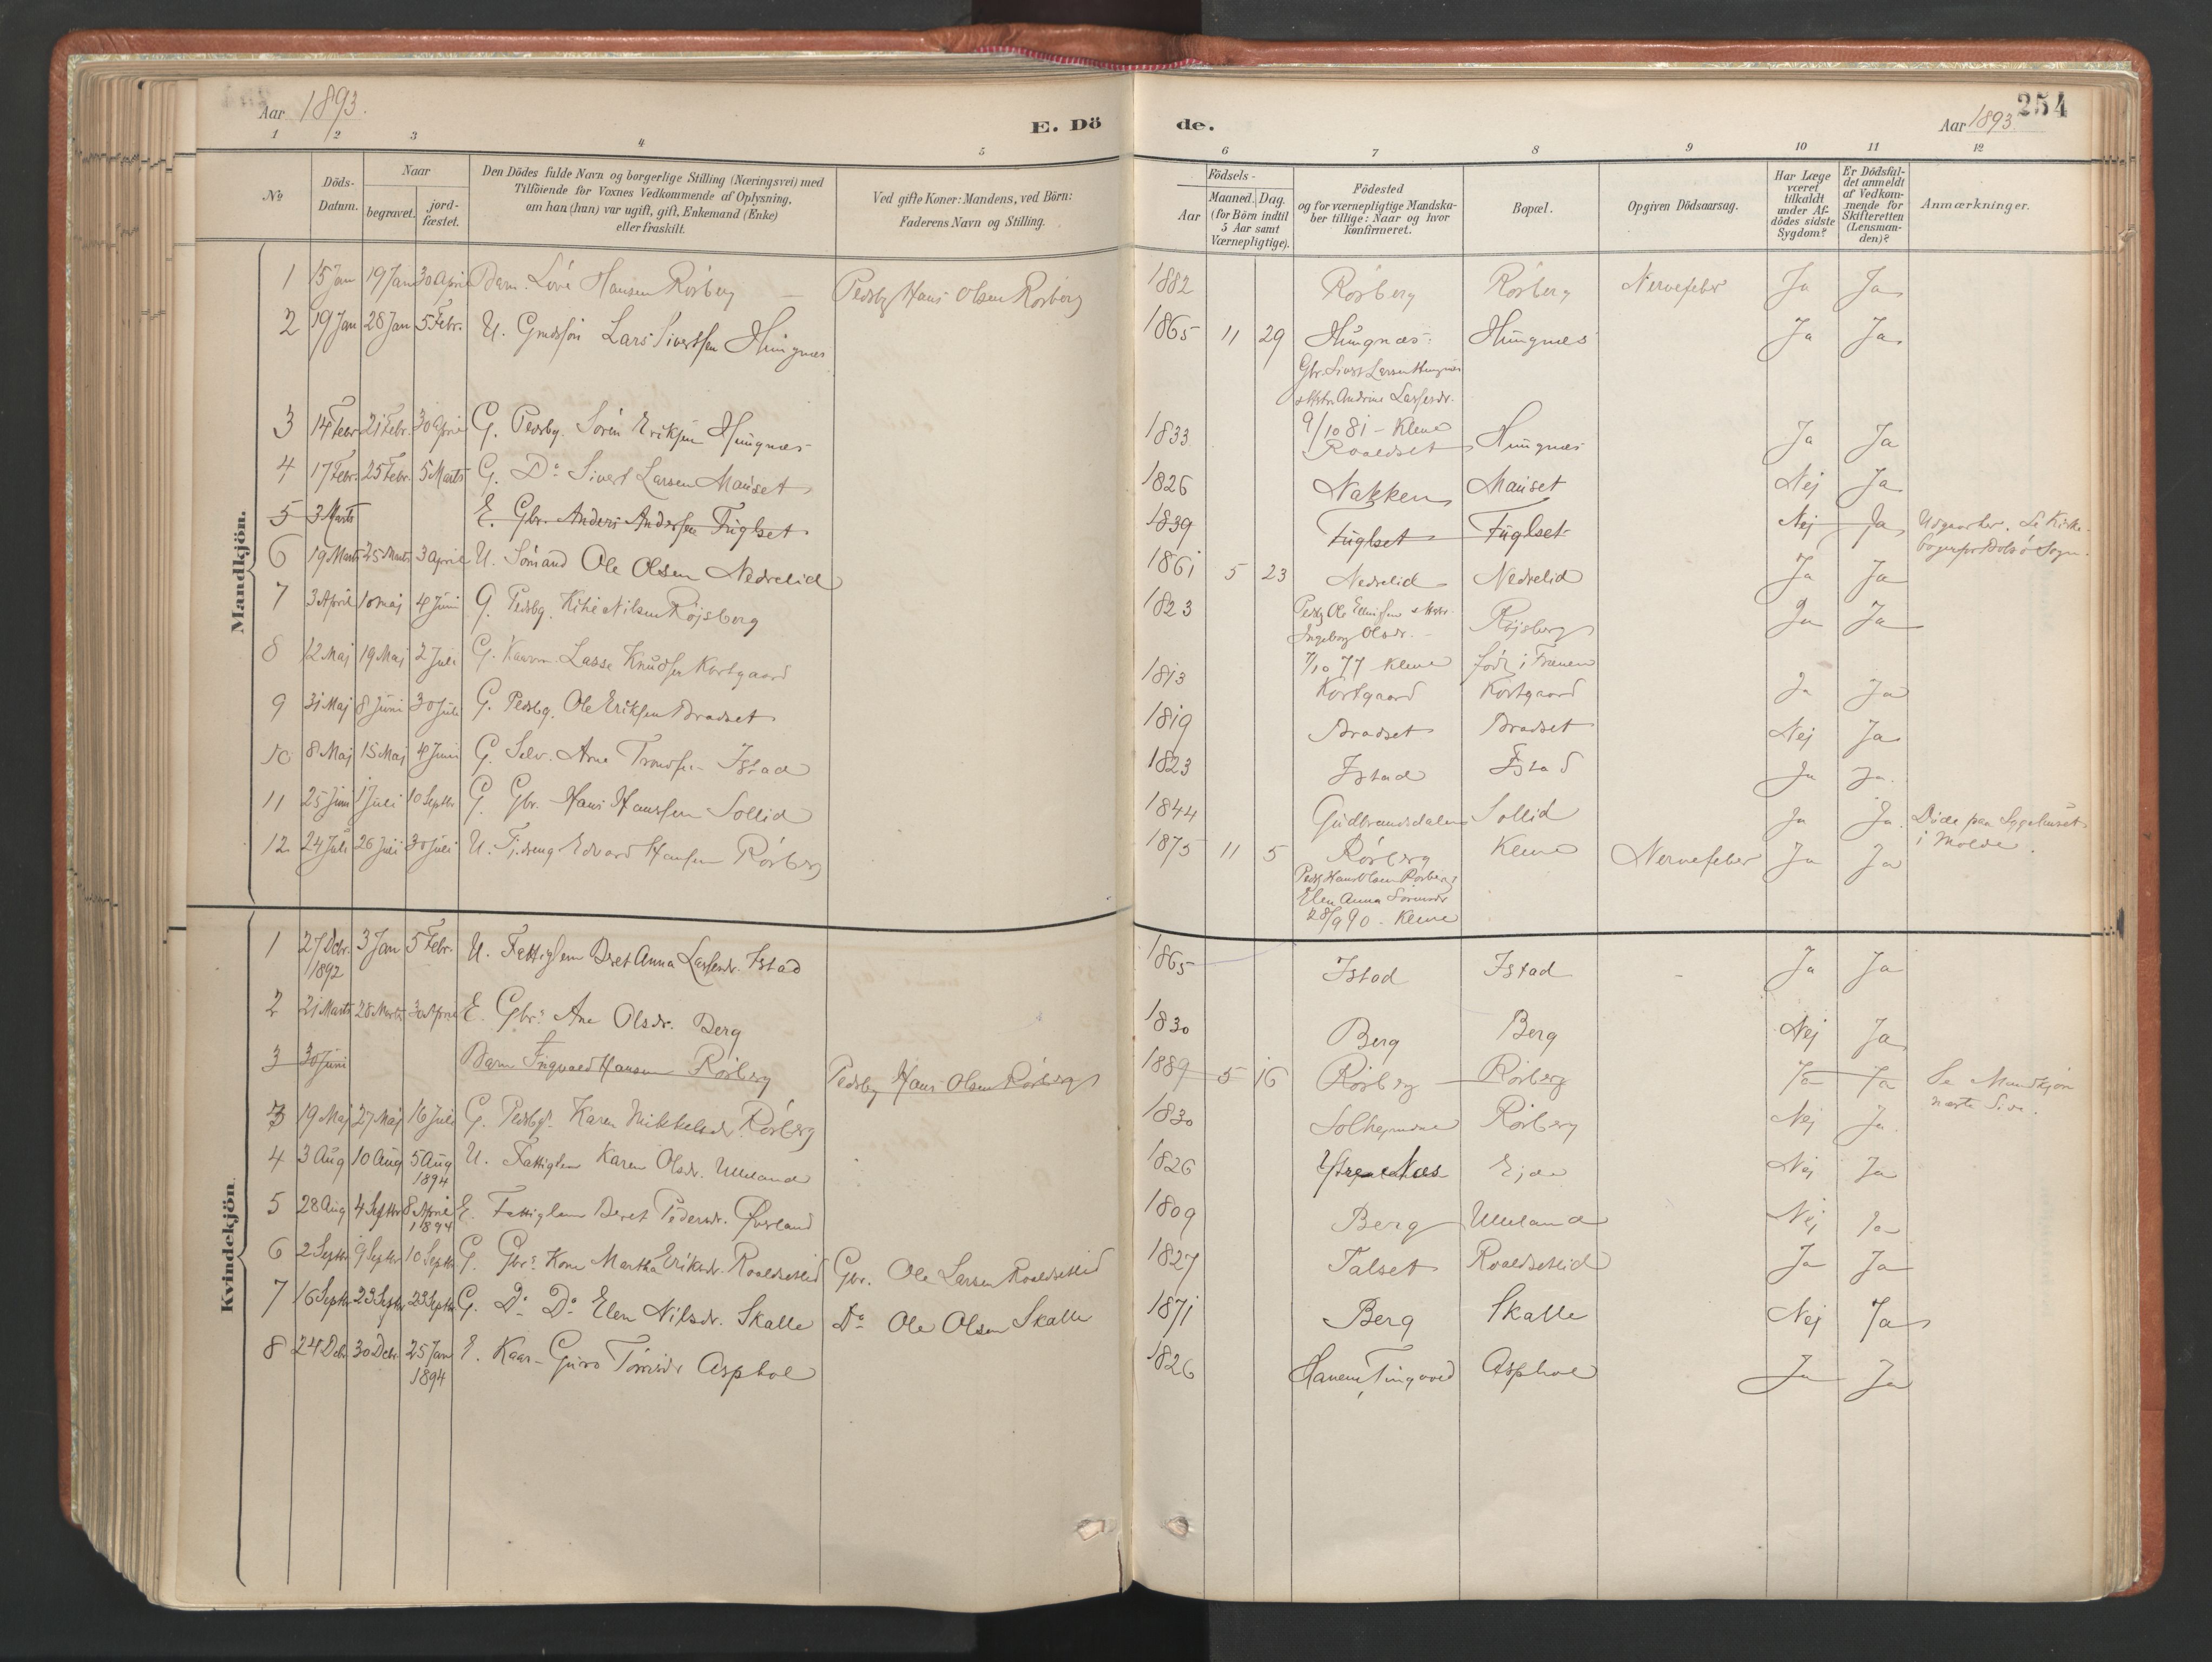 Aar 1893.
E. Dö
de.
Aar 1893.
254
1 2 3 4 5 6 7 8 9 10 11 12
No
Döds-
Datum.
Naar
begravet.
jord-
fæstet.
Den Dödes fulde Navn og borgerlige Stilling (Næringsvei) med
Tilföiende for Voxnes Vedkommende af Oplysning,
om han (hun) var ugift, gift, Enkemand (Enke)
eller fraskilt.
Ved gifte Koner: Mandens, ved Börn:
Faderens Navn og Stilling.
Födsels-
Aar
Maaned. Dag.
(for Börn indtil
5 Aar samt
Værnepligtige).
Födested
og for værnepligtige Mandska-
ber tillige: Naar og hvor
konfirmeret.
Bopæl.
Opgiven Dödsaarsag.
Har Læge
været
tilkaldt
under Af-
dödes sidste
Sygdom?
Er Dödsfal-
det anmeldt
af Vedkom-
mende for
Skifteretten
(Lensman-
den)?
Anmærkninger.
Mandkjön.
1 15 Jan 19 Jan 30 April Barn Hansen Rörberg — Pedsbg Hans Olsen Rörberg 1882 Rörberg Rörberg Nervefeber Ja Ja
2 19 Jan 28 Jan 5 Febr. U. Grndssön Lars Sivertsen Hungnes 1865 11 29 Hungnæs Hungnes Ja Ja
Gbr. Sivert Larsen Hungnes
Andrine Larsesdr.
9/10 81 - Kleive
3 14 Febr 21 Febr. 30 April G. Pedsbg. Sören Eriksen Hungnes 1833 Roaldset Hungnes Ja Ja
4 17 Febr. 25 Febr. 5 Marts G. Do Sivert Larsen Mauset 1826 Nakken Mauset Nej Ja
5 3 Marts E. Gbr. Anders Andersen Fuglset 1839 Fuglset Fuglset Nej Ja Udgaar her. Se Kirke-
bogen for Bolsö Sogn.
6 19 Marts 25 Marts 3 April U. Sömand Ole Olsen Nedrelid 1861 5 23 Nedrelid Nedrelid Ja Ja
Pedsbg Ole
Ingeborg Olsdr.
7/10 77 Kleive
7 3 April 10 Maj 4 Juni G. Pedsbg. Nilsen Röjsberg 1823 Röjsberg Ja Ja
föd i Frænen
8 12 Maj 19 Maj 2 Juli G. Kaarm. Lasse Knudsen Kortgaard 1813 Kortgaard Kortgaard Ja Ja
9 31 Maj 8 Juni 30 Juli G. Pedsbg. Ole Eriksen Bradset 1819 Bradset Bradset Nej Ja
10 8 Maj 15 Maj 4 Juni G. Selv. Arne Trondsen Istad 1823 Istad Istad Ja Ja.
11 25 Juni 1 Juli 10 Septbr G. Gbr. Hans Hanssen Sollid 1844 Gudbrandsdalen Sollid Ja Ja. Döde paa Sygehuset
i Molde.
12 24 Juli 26 Juli 30 Juli U. Tj.dreng Edvard Hansen Rörberg 1875 11 5 Rörberg Kleive Nervefeber Ja Ja
Pedsbg Hans Olsen Rörberg
Elen Anna Sörensdr
28/9 90 - Kleive
Kvindekjön.
1 27 Dcbr. 1892 3 Jan 5 Febr. U. Fattiglem Beret Anna Larsesdr. Istad 1865 Istad Istad Ja Ja
2 21 Marts 28 Marts 30 April E. Gbr. Ane Olsdr. Berg 1830 Berg Berg Nej Ja
3 30 Juni Barn Ingvald Hansen Rörberg Pedsbg Hans Olsen Rörberg 1889 5 16 Rörberg Rörberg Ja Ja Se Mandkjön
næste Side.
3 19 Maj 27 Maj 16 Juli G. Pedsbg. Karen Mikkelsdr. Rörberg 1830 Rörberg Nej Ja.
4 3 Aug 10 Aug 5 Aug 1894 U. Fattiglem Karen Olsdr. Ulleland 1826 Ytre Næs Ejde Nej Ja
5 28 Aug 4 Septbr 8 April 1894 E. Fattiglem Beret Pedersdr. Överland 1809 Berg Ulleland Nej Ja
6 2 Septbr 9 Septbr 10 Septbr G. Gbr. Kone Martha Eriksdr. Roaldsetlid Gbr. Ole Larsen Roaldsetlid 1827 Talset Roaldsetlid Ja Ja
7 16 Septbr 23 Septbr 23 Septbr G. Do Do Elen Nilsdr. Skalle Do Ole Olsen Skalle 1871 Berg Skalle Nej Ja
8 24 Dcbr 30 Dcbr. 25 Jan 1894 E. Kaar- Guro Asphol 1826 Hanem, Tingvold Asphol Ja Ja